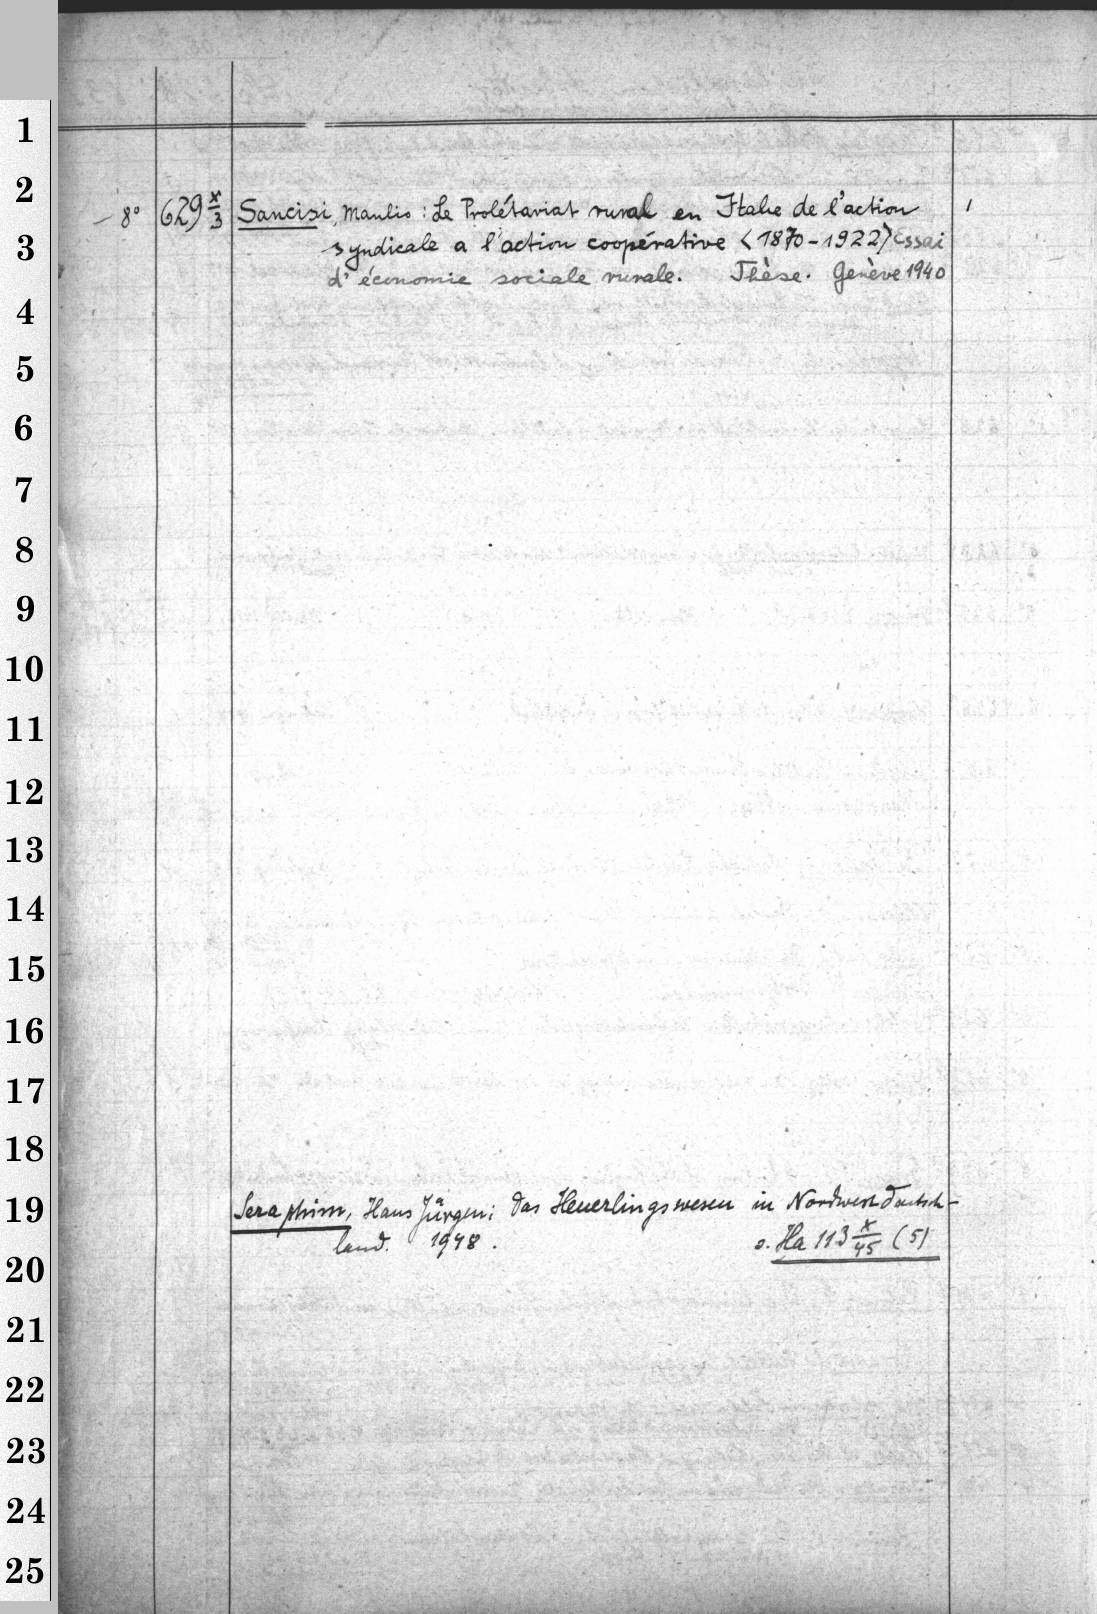 1
2
— 8° 629 x/3 Sancisi, Manlio : Le Prolétariat rural en Italie de l'action 1
3
syndicale a l'action coopérative <1870-1922> Essai
d'économie sociale rurale. Thèse. Genève 1940
4
5
6
7
8
9
10
11
12
13
14
15
16
17
18
19
Seraphim, Hans Jürgen: Das Heuerlingswesen in Nordwestdeutsch-
land. 1948. s. Ha 113 x/45 (5)
20
21
22
23
24
25